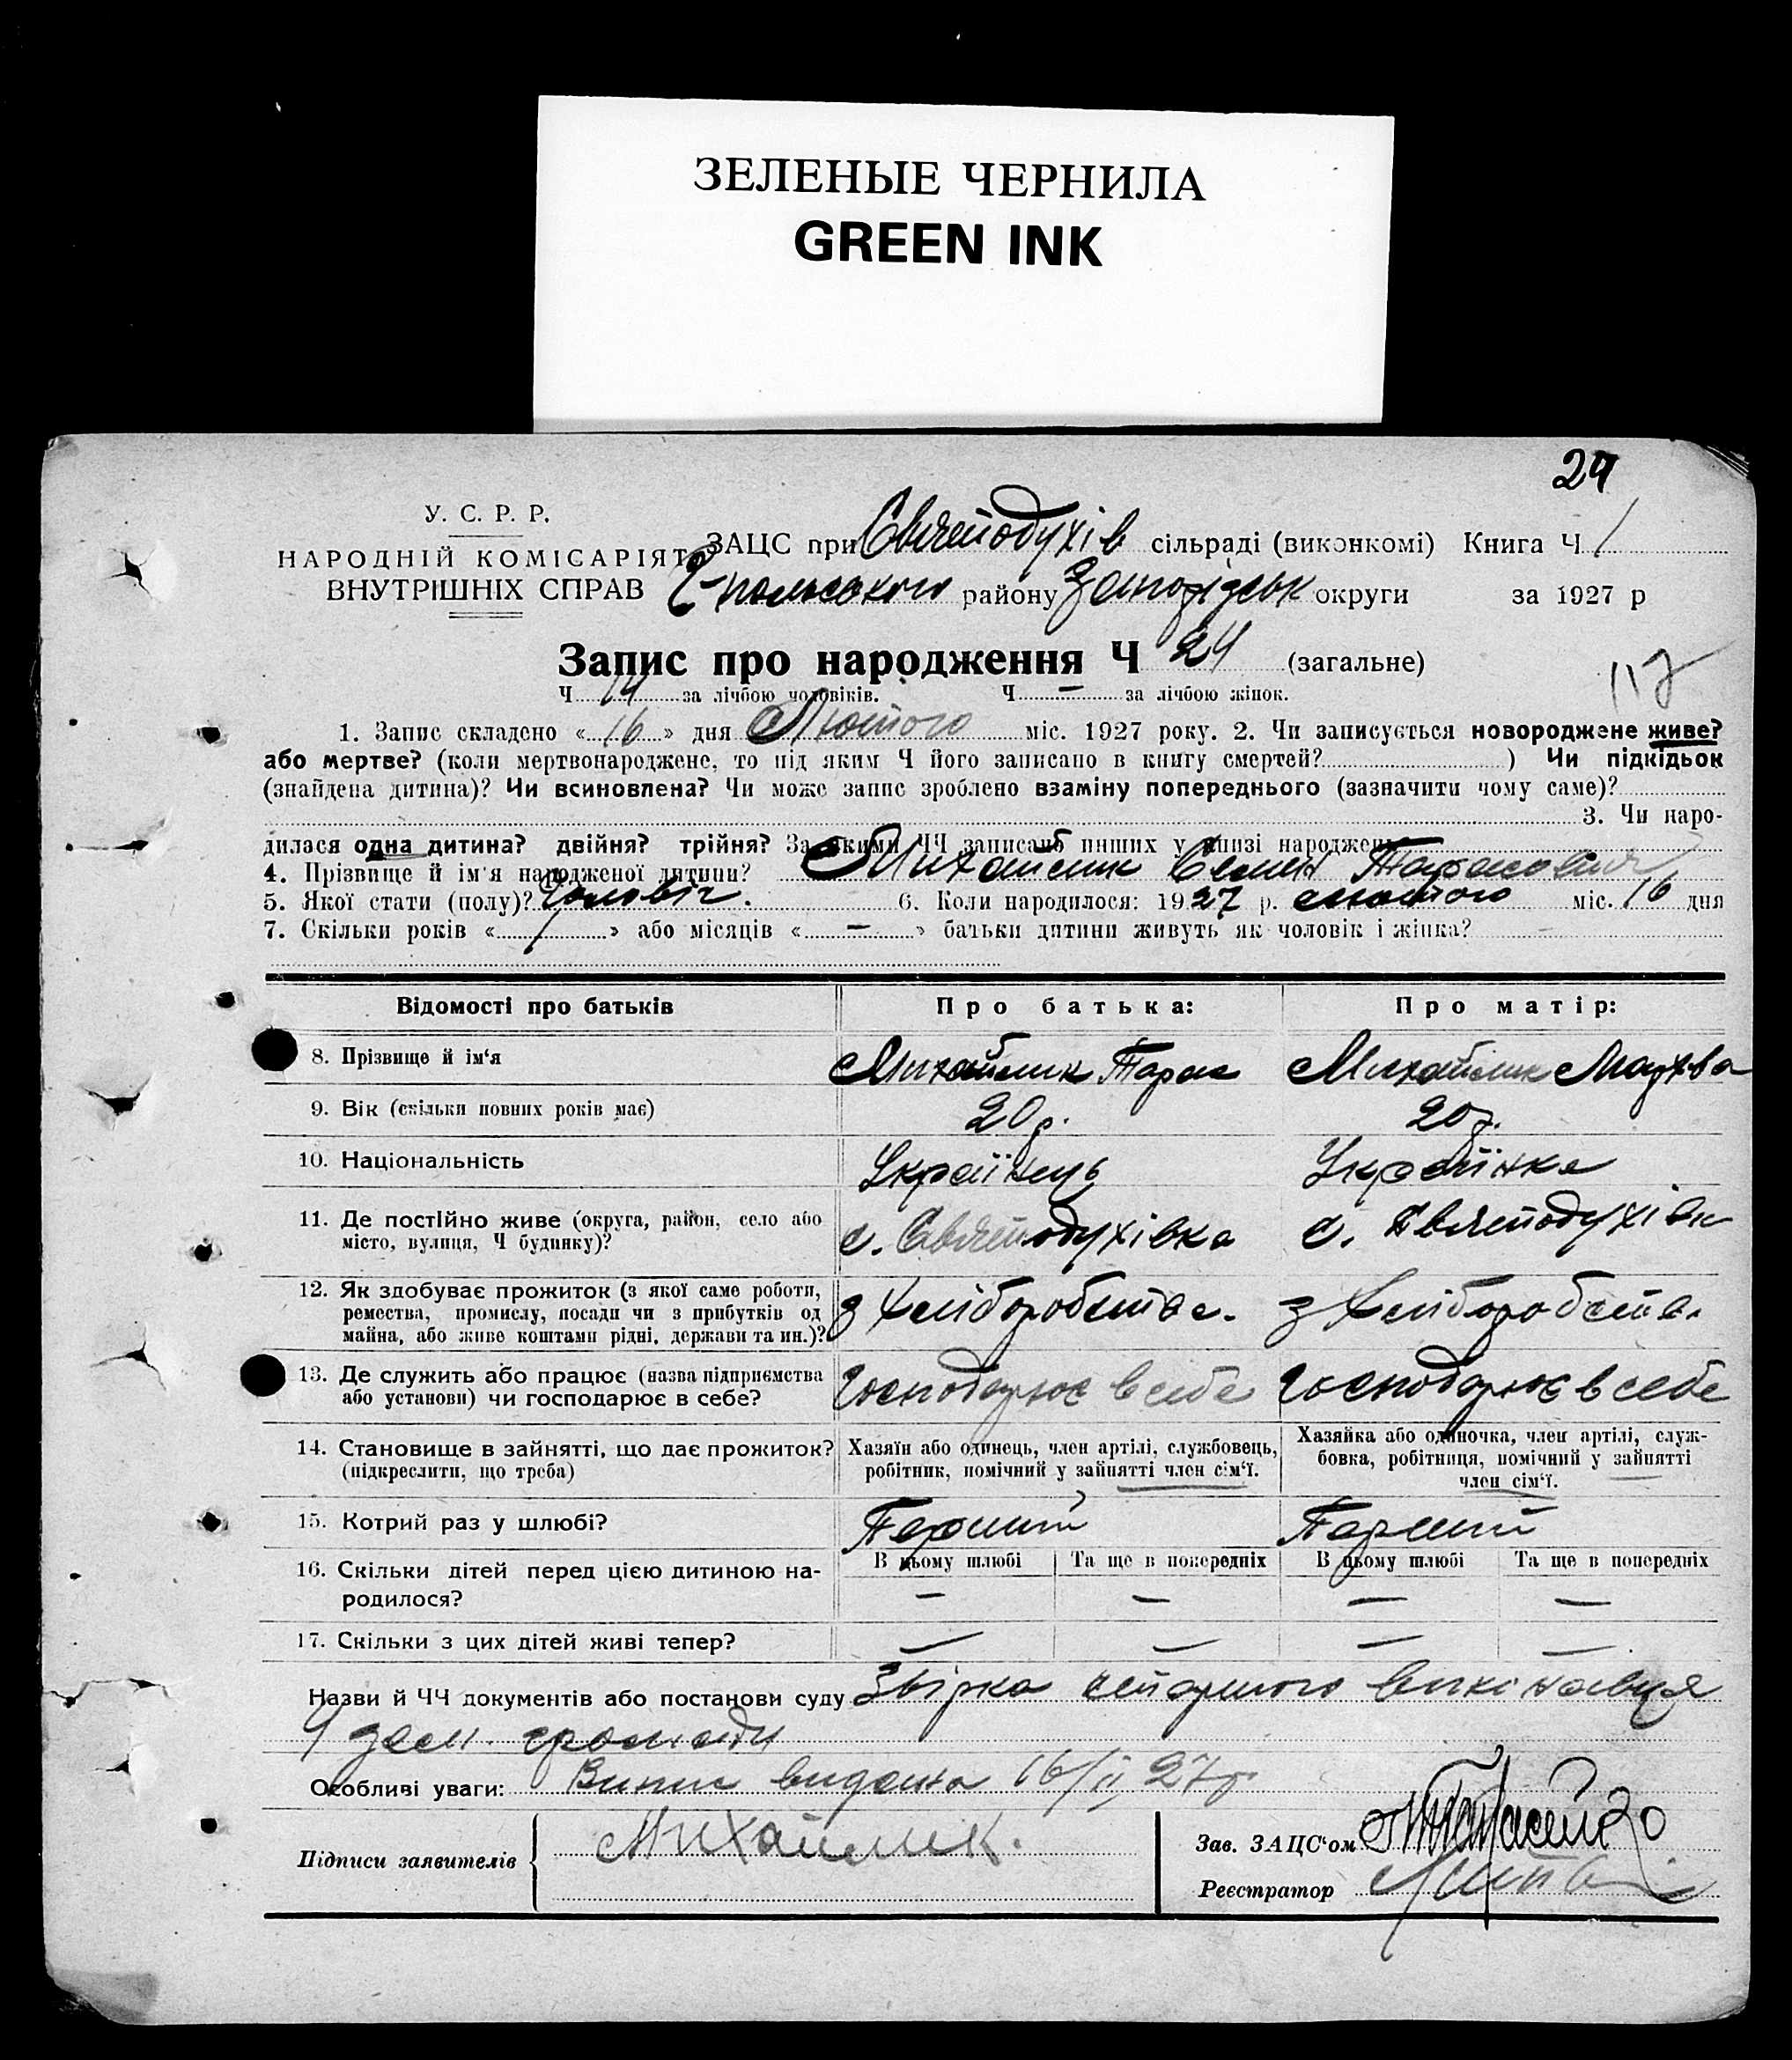 ЗЕЛЕНЫЕ ЧЕРНИЛА
GREEN INK
24
У. С. Р. Р.
НАРОДНІЙ КОМІСАРІЯТ
ВНУТРІШНІХ СПРАВ
ЗАЦС при Святодухів сільраді (виконкомі) Книга Ч 1
району Запорізьк округи за 1927 р
Запис про народження Ч 24 (загальне)
Ч 14 за лічбою чоловіків. Ч — за лічбою жінок.
117
1. Запис складено « 16 » дня Лютого міс. 1927 року. 2. Чи записується новороджене живе?
або мертве? (коли мертвонароджене, то під яким Ч його записано в книгу смертей? ) Чи підкідьок
(знайдена дитина)? Чи всиновлена? Чи може запис зроблено взаміну попереднього (зазначити чому саме)?
3. Чи наро-
дилася одна дитина? двійня? трійня? За якими ЧЧ записано инших у книзі народжень
4. Прізвище й ім'я народженої дитини? Михайлик Семен Тарасович
5. Якої стати (полу)? Чоловіч. 6. Коли народилося: 1927 р. лютого міс. 16 дня
7. Скільки років « 1 » або місяців « — » батьки дитини живуть як чоловік і жінка?
Відомості про батьків Про батька: Про матір:
8. Прізвище й ім'я Михайлик Тарас Михайлик Мархва
9. Вік (скільки повних років має) 20 р. 20 р.
10. Національність Українець Українка
11. Де постійно живе (округа, район, село або
місто, вулиця, Ч будинку)? с. Святодухівка с. Святодухівк
12. Як здобуває прожиток (з якої саме роботи,
ремества, промислу, посади чи з прибутків од
майна, або живе коштами рідні, держави та ин.)? з Хліборобства. з Хліборобств.
13. Де служить або працює (назва підприємства
або установи) чи господарює в себе? Господарює в себе Господарює в себе
14. Становище в зайнятті, що дає прожиток?
(підкреслити, що треба)
Хазяїн або одинець, член артілі, службовець,
робітник, помічний у зайнятті член сім'ї.
Хазяйка або одиночка, член артілі, служ-
бовка, робітниця, помічний у зайнятті
член сім'ї.
15. Котрий раз у шлюбі? Перший Перший
В цьому шлюбі Та ще в попередніх В цьому шлюбі Та ще в попередніх
16. Скільки дітей перед цією дитиною на-
родилося? — — — —
17. Скільки з цих дітей живі тепер? — — — —
Назви й ЧЧ документів або постанови суду Звірка
зем. громади
Особливі уваги: Випис видана 16/II 27р
Підписи заявителів Михайлик.
Зав. ЗАЦС'ом
Реєстратор